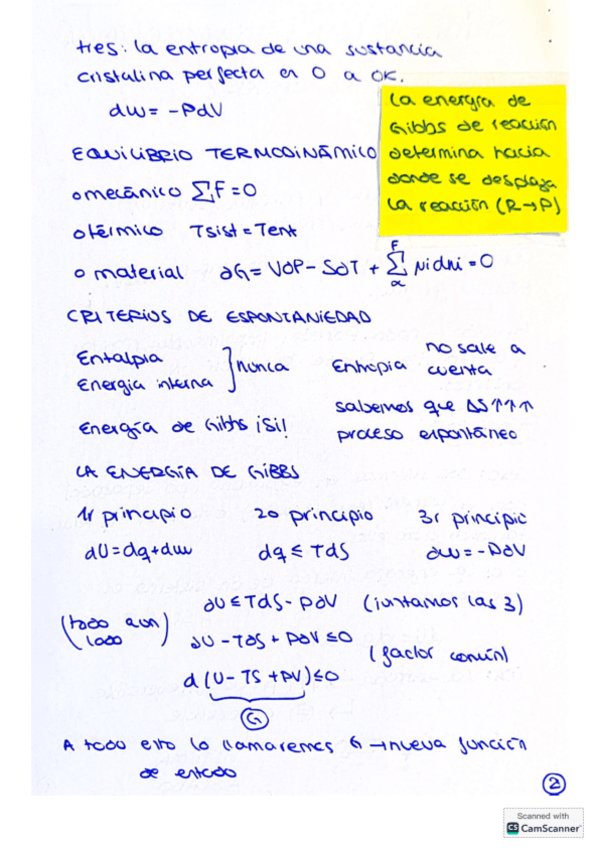 tres: la entropia de una sustancia
cristalina perfecta en 0 a 0K.
dw = -PdV
EQUILIBRIO TERMODINÁMICO
o mecánico ∑F = 0
o térmico Tsist = Tent
o material dG = VdP - SdT + ∑ Nidni = 0
F
α
La energía de
Gibbs de reacción
determina hacia
donde se desplaza
la reacción (R→P)
CRITERIOS DE ESPONTANIEDAD
Entalpia
Energia interna
} nunca
Energía de Gibbs ¡Si!
Entropia no sale a
cuenta
sabemos que ΔS↑↑↑
proceso espontáneo
LA ENERGÍA DE GIBBS
1r principio 2o principio 3r principio
dU = dq + dw dq ≤ TdS dw = -PdV
dU ≤ TdS - PdV (juntamos las 3)
(todo a un
lado)
dU - TdS + PdV ≤ 0
(factor común)
d(U - TS + PV) ≤ 0
G
A todo esto lo llamaremos G → nueva función
de estado
2
Scanned with
CS CamScanner